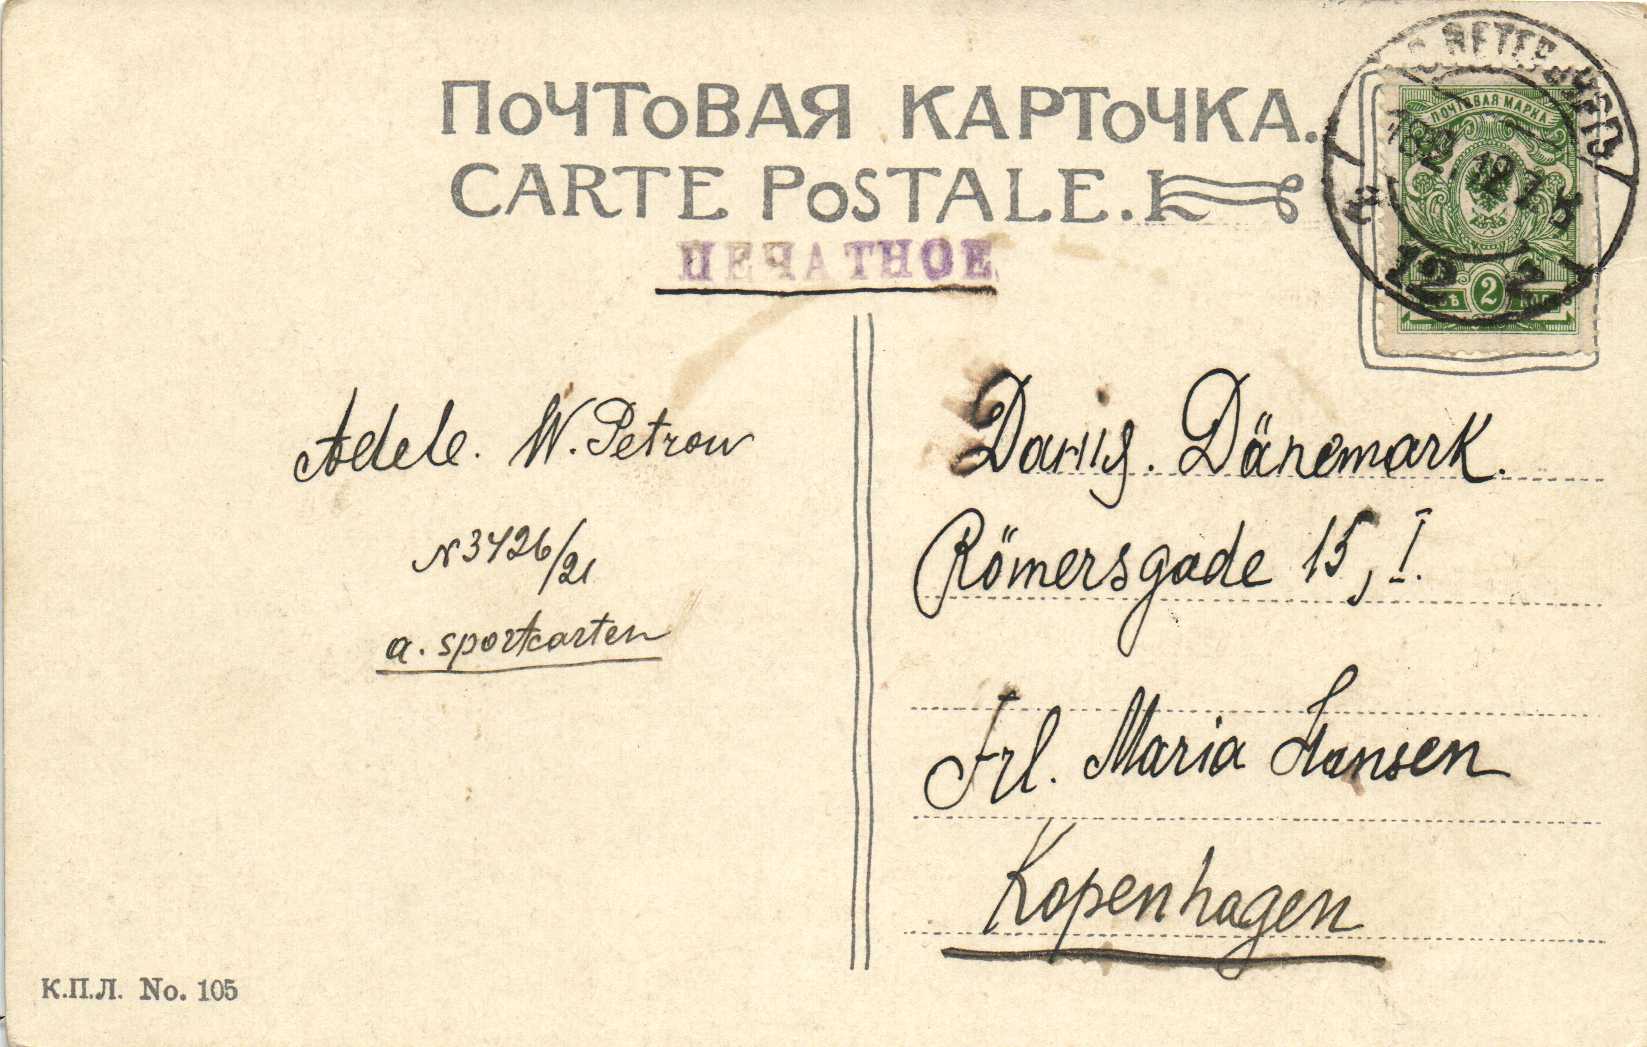 ПОЧТОВАЯ КАРТОЧКА.
CARTE POSTALE.
ПЕЧАТНОЕ
ПОЧТОВАЯ МАРКА
2
Adele. W. Petrow
N 3426/21
a. sportkarten
Данія. Dänemark.
Römersgade 15, I.
Frl. Maria Hansen
Kopenhagen
К.П.Л. No. 105